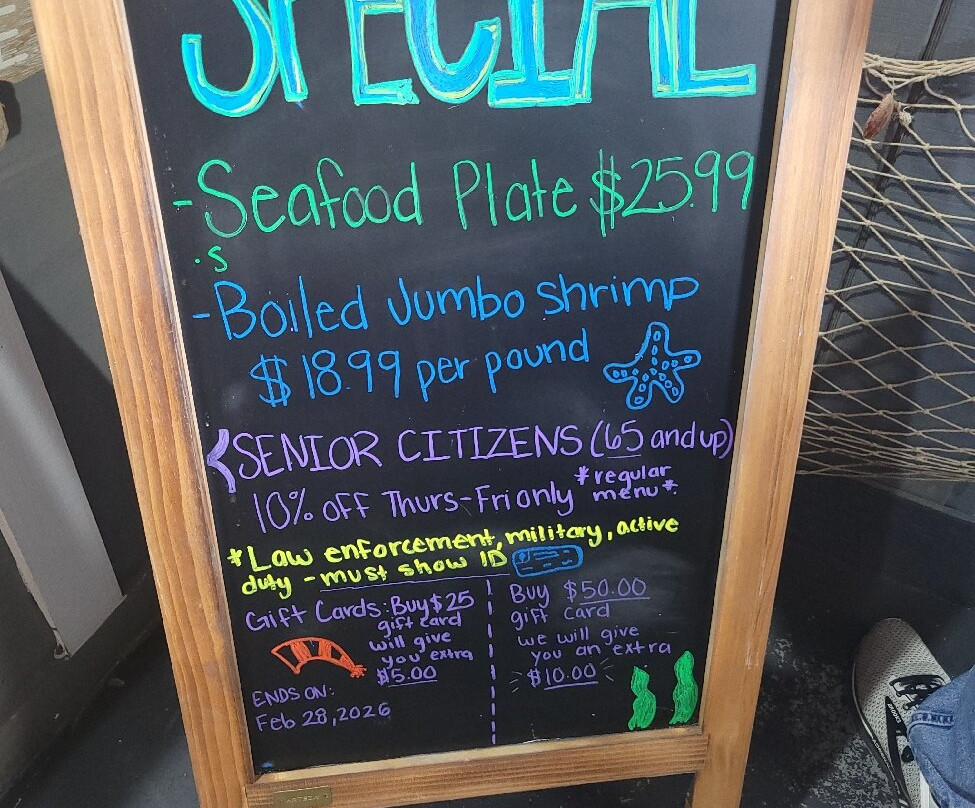 SPECIAL
- Seafood Plate $25.99
. S
- Boiled Jumbo Shrimp
$18.99 per pound
SENIOR CITIZENS (65 and up)
10% OFF Thurs-Fri only *regular menu*
*Law enforcement, military, active
duty - must show ID
Gift Cards: Buy $25
gift card
will give
you extra
$5.00
ENDS ON:
Feb 28, 2026
Buy $50.00
gift card
we will give
you an extra
$10.00